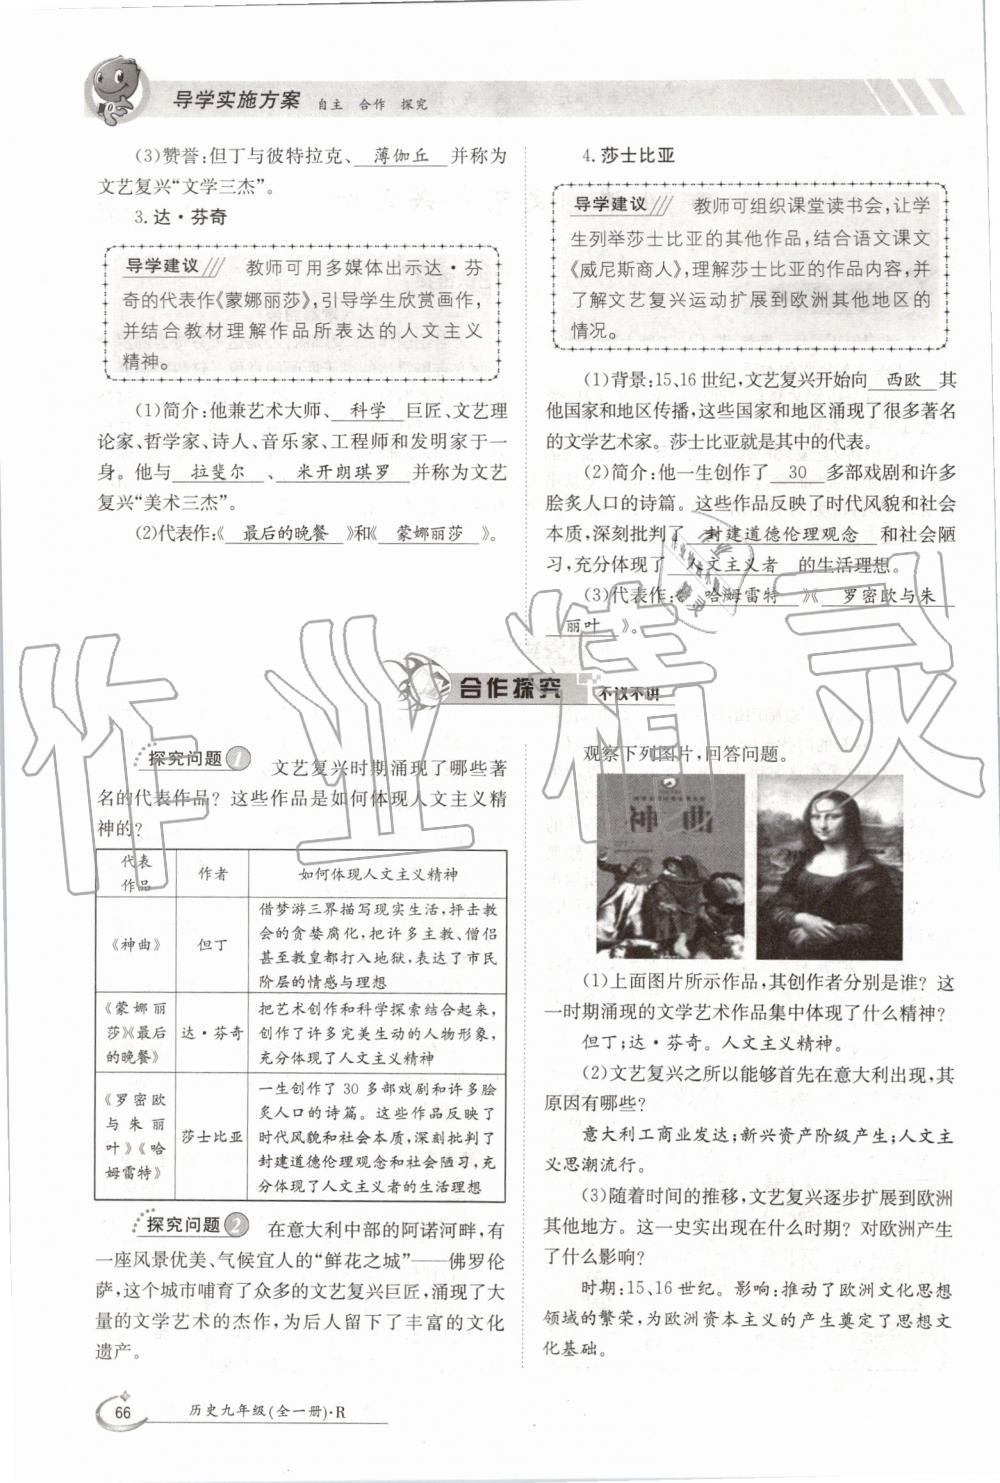 导学实施方案 自主 合作 探究
(3)赞誉:但丁与彼特拉克、 薄伽丘 并称为
文艺复兴“文学三杰”。
3. 达·芬奇
导学建议 教师可用多媒体出示达·芬
奇的代表作《蒙娜丽莎》,引导学生欣赏画作,
并结合教材理解作品所表达的人文主义
精神。
(1)简介:他兼艺术大师、 科学 巨匠、文艺理
论家、哲学家、诗人、音乐家、工程师和发明家于一
身。他与 拉斐尔 、 米开朗琪罗 并称为文艺
复兴“美术三杰”。
(2)代表作:《 最后的晚餐 》和《 蒙娜丽莎 》。
4. 莎士比亚
导学建议 教师可组织课堂读书会,让学
生列举莎士比亚的其他作品,结合语文课文
《威尼斯商人》,理解莎士比亚的作品内容,并
了解文艺复兴运动扩展到欧洲其他地区的
情况。
(1)背景:15、16 世纪,文艺复兴开始向 西欧 其
他国家和地区传播,这些国家和地区涌现了很多著名
的文学艺术家。莎士比亚就是其中的代表。
(2)简介:他一生创作了 30 多部戏剧和许多
脍炙人口的诗篇。这些作品反映了时代风貌和社会
本质,深刻批判了 封建道德伦理观念 和社会陋
习,充分体现了 人文主义者 的生活理想。
(3)代表作:《 哈姆雷特 》《 罗密欧与朱
丽叶 》。
合作探究 不议不讲
探究问题1 文艺复兴时期涌现了哪些著
名的代表作品? 这些作品是如何体现人文主义精
神的?
代表
作品
作者
如何体现人文主义精神
《神曲》
但丁
借梦游三界描写现实生活,抨击教
会的贪婪腐化,把许多主教、僧侣
甚至教皇都打入地狱,表达了市民
阶层的情感与理想
《蒙娜丽
莎》《最后
的晚餐》
达·芬奇
把艺术创作和科学探索结合起来,
创作了许多完美生动的人物形象,
充分体现了人文主义精神
《罗密欧
与朱丽
叶》《哈
姆雷特》
莎士比亚
一生创作了 30 多部戏剧和许多脍
炙人口的诗篇。这些作品反映了
时代风貌和社会本质,深刻批判了
封建道德伦理观念和社会陋习,充
分体现了人文主义者的生活理想
探究问题2 在意大利中部的阿诺河畔,有
一座风景优美、气候宜人的“鲜花之城”——佛罗伦
萨,这个城市哺育了众多的文艺复兴巨匠,涌现了大
量的文学艺术的杰作,为后人留下了丰富的文化
遗产。
观察下列图片,回答问题。
神曲
(1)上面图片所示作品,其创作者分别是谁? 这
一时期涌现的文学艺术作品集中体现了什么精神?
但丁;达·芬奇。人文主义精神。
(2)文艺复兴之所以能够首先在意大利出现,其
原因有哪些?
意大利工商业发达;新兴资产阶级产生;人文主
义思潮流行。
(3)随着时间的推移,文艺复兴逐步扩展到欧洲
其他地方。这一史实出现在什么时期? 对欧洲产生
了什么影响?
时期:15、16 世纪。影响:推动了欧洲文化思想
领域的繁荣,为欧洲资本主义的产生奠定了思想文
化基础。
66 历史九年级(全一册)·R
作业精灵